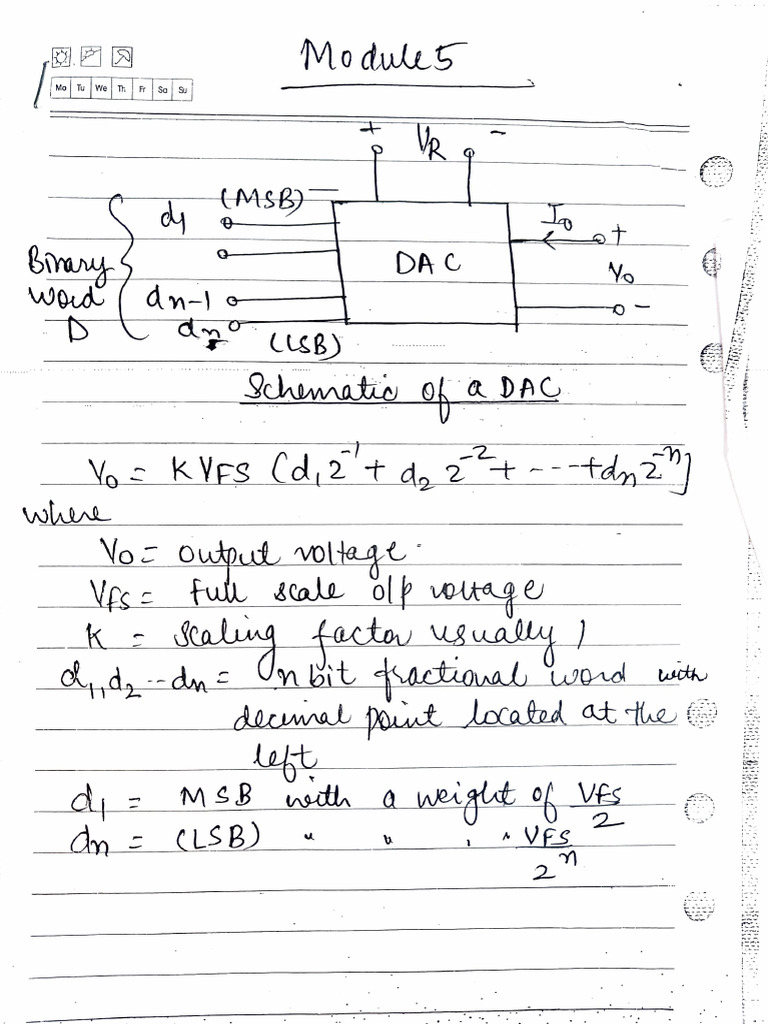 Module 5
Mo Tu We Th Fr Sa Su
+ VR -
(MSB)
d1
I0
+
Binary
word
D
DAC
V0
dn-1
-
dn
(LSB)
Schematic of a DAC
V0 = K VFS (d1 2^-1 + d2 2^-2 + --- + dn 2^-n]
where
V0 = output voltage.
VFS = full scale o/p voltage
K = scaling factor usually 1
d1, d2 -- dn = n bit fractional word with
decimal point located at the
left
d1 = MSB with a weight of VFS/2
dn = (LSB) " " " " VFS/2^n